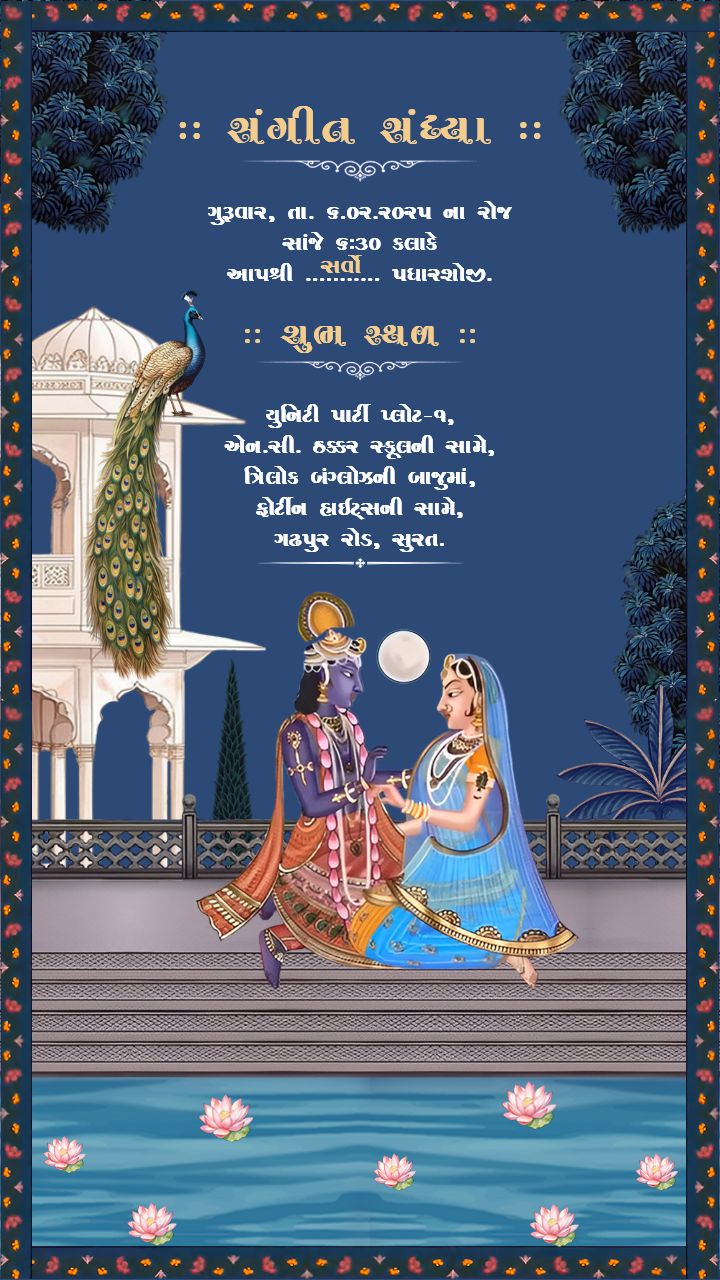 :: સંગીત સંધ્યા ::
ગુરૂવાર, તા. ૬.૦૨.૨૦૨૫ ના રોજ
સાંજે ૬:૩૦ કલાકે
આપશ્રી ....સર્વો.... પધારશોજી.
:: શુભ સ્થળ ::
યુનિટી પાર્ટી પ્લોટ-૧,
એન.સી. ઠક્કર સ્કૂલની સામે,
ત્રિલોક બંગ્લોઝની બાજુમાં,
ફોર્ટીન હાઈટ્સની સામે,
ગઢપુર રોડ, સુરત.